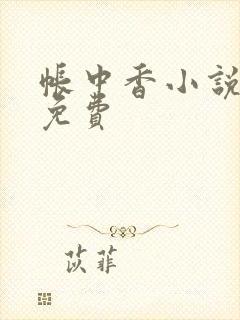 帳中香小說
免費
苡菲